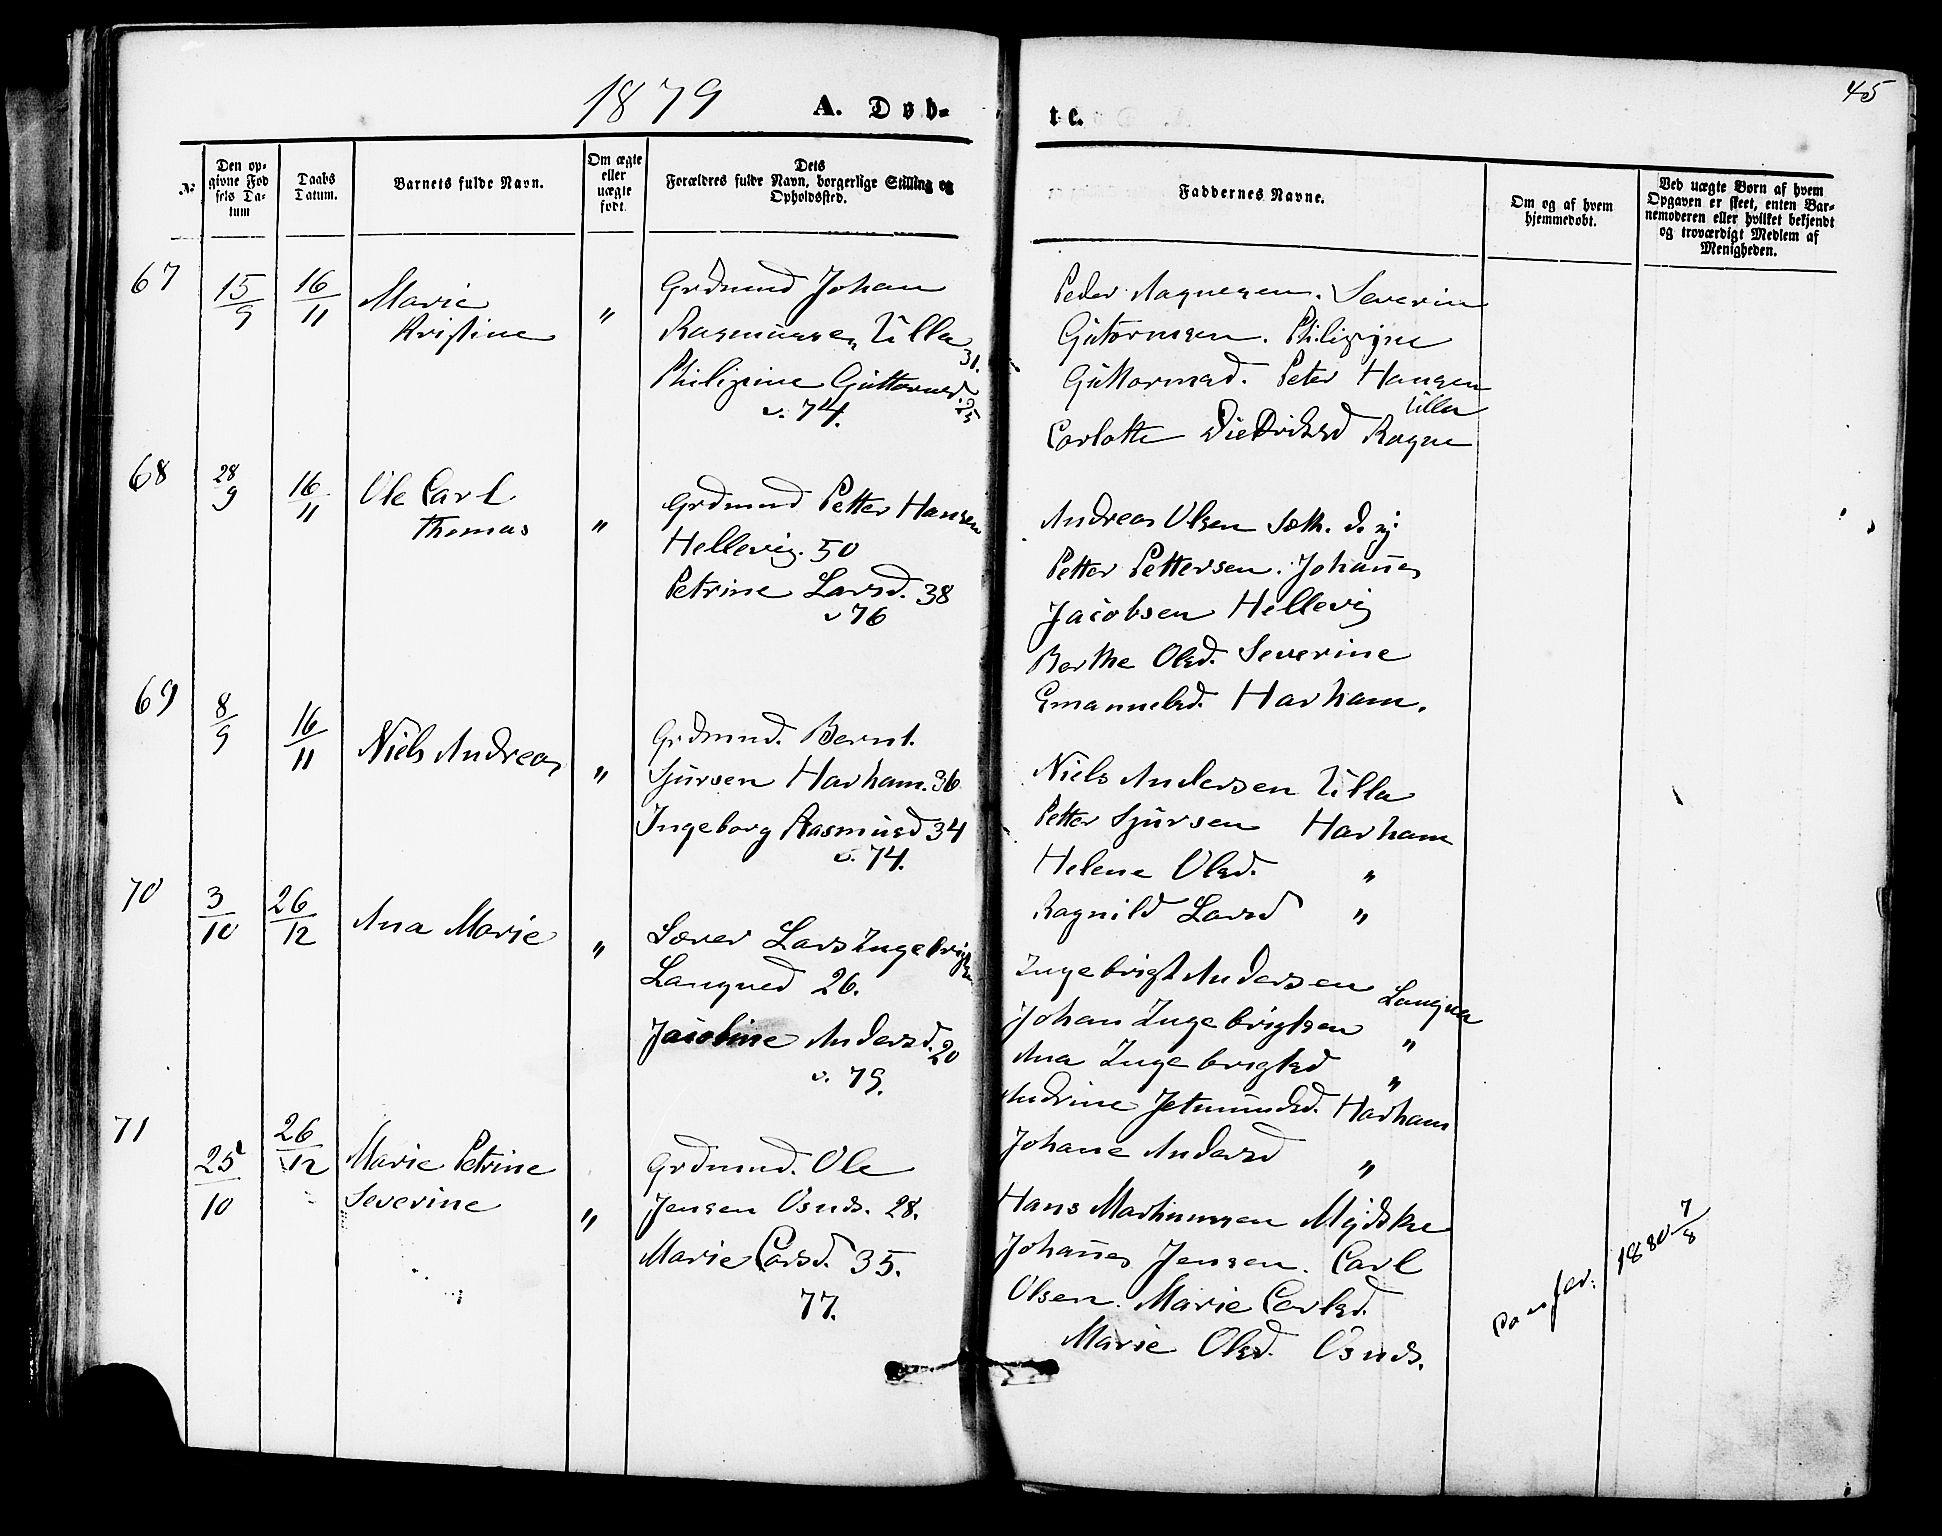 1879 A. Døb-
te.
45
No
Den op-
givne Fød
sels Da-
tum
Daabs
Datum.
Barnets fulde Navn.
Om ægte
eller
uægte
født.
Dets
Forældres fulde Navn, borgerlige Stilling og
Opholdssted.
Faddernes Navne.
Om og af hvem
hjemmedøbt.
Ved uægte Børn af hvem
Opgaven er skeet, enten Bar-
nemoderen eller hvilket bekjendt
og troværdigt Medlem af
Menigheden.
67
15/9
16/11
Marie
Kristine
"
Grdmand Johan
Rasmussen Ulla 31.
Philipine Guttormsd. 25
v. 74.
Peder Aagnesen. Severin
Gutormsen. Philipine
Guttormsd. Peter Hansen
Ulla
Carlotte Diedriksd Rogne
68
28/9
16/11
Ole Carl
Thomas
"
Grdmand Petter Hansen
Hellevig. 50
Petrine Larsd. 38
v 76
Andreas Olsen Sæth. d. y.
Petter Pettersen. Johannes
Jacobsen Hellevig
Berthe Olsd. Severine
Emanuelsd. Harham.
69
8/9
16/11
Niels Andreas
"
Grdmand. Bernt.
Sjursen Harham. 36
Ingeborg Rasmusd 34
v. 74.
Niels Andersen Ulla
Petter Sjursen Harham
Helene Olsd. "
Ragnild Larsd "
70
3/10
26/12
Ana Marie
"
Lærer Lars Ingebrigts
Longved 26.
Jacobine Andersd. 20
v. 79.
Ingebrigt Andersen Longva
Johan Ingebrigtsen "
Ana Ingebrigtsd "
Andrine Jetmundsd. Harham
Johane Andersd "
71
25/10
26/12
Marie Petrine
Severine
"
Grdmand. Ole
Jensen Osnes. 28.
Marie Carsd. 35.
77.
Hans Martinussen Myskje
Johannes Jensen. Carl
Olsen. Marie Carlsd.
Marie Olsd. Osnes.
1880 7/8